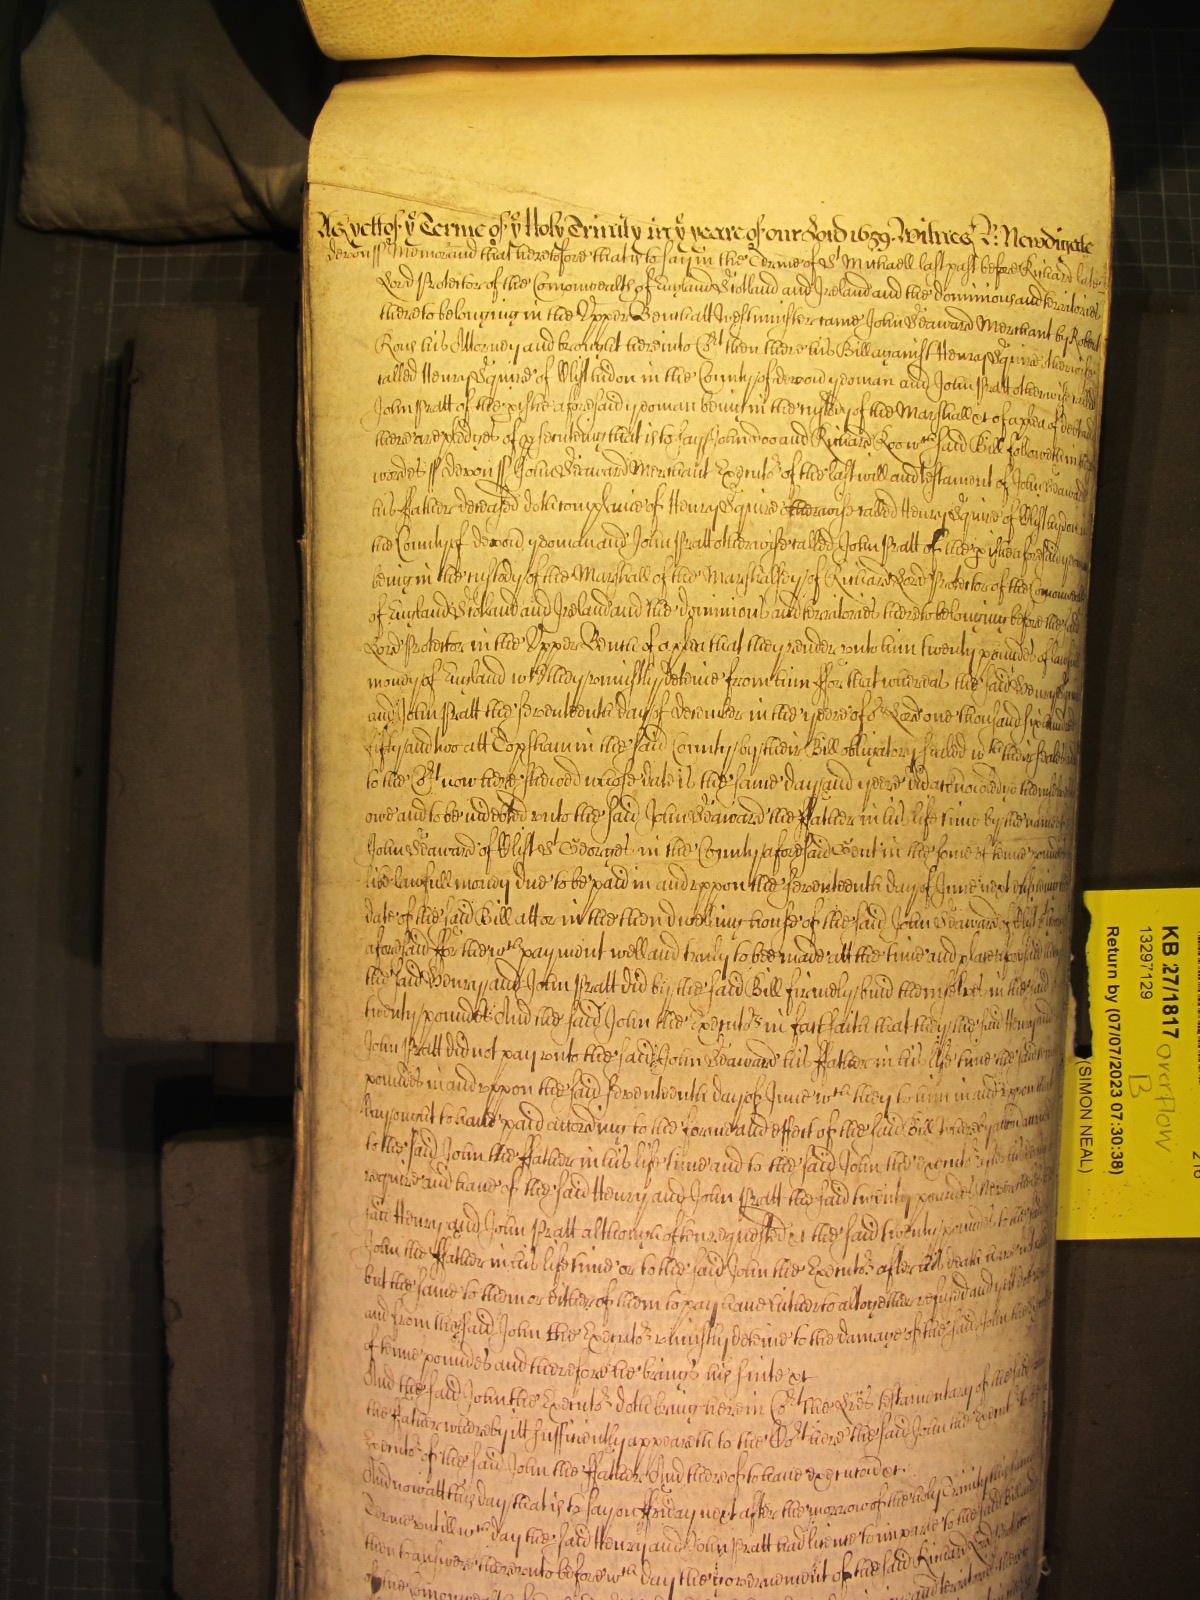 As yett of ye Terme of ye Holy Trinity in ye yeare of our Lord 1659. Witnes R: Newdigate
devon ss Memorand that heretofore that is to say in the Terme of St Michaell last past before Richard late
Lord Protector of the Comonwealth of England Scotland and Ireland and the dominions and territories
thereto belonging in the Upper Bench att Westminster came John Seaward Merchant by Robert
his Attorney and brought here into Cort then there his Bill against Henry Squire otherwise
called Henry Squire of in the County of devon yeoman and John Pratt otherwise called
John Pratt of the pishe aforesaid yeoman being in the custody of the Marshall &c of a plea of debt and
there are pledges of psecuting that is to say John doo and Richard Roo wch said Bill followeth in these
wordes ss devon ss John Seaward Merchant Executor of the last will and testament of John Seaward
his Father deceased doth complaine of Henry Squire otherwise called Henry Squire of
the County of devon yeoman and John Pratt otherwise called John Pratt of the pishe aforesaid yeoman
being in the custody of the Marshall of the Marshalsey of Richard Lord Protector of the Comonwealth
of England Scotland and Ireland and the dominions and territories thereto belonging before the said
Lord Protector in the Upper Bench of a plea that they render unto him twenty pounds of lawfull
money of England wch they uniustly deteine from him For that whereas the said Henry Squire
and John Pratt the seventeenth day of december in the yeere of or Lord one thousand six hundred
fifty and two att Topsham in the said County by their Bill obligatory sealed wth their seales and
to the Cort now here shewed whose date is the same day and yeere did acknowledge themselves to
owe and to be indebted unto the said John Seaward the Father in his life time by the name of
John Seaward of Clist St Georges in the County aforesaid Gent in the some of tenne pounds
like lawfull money due to be paid in and uppon the seventeenth day of June next ensuing the
date of the said Bill att or in the then dwelling house of the said John Seaward of Clist St Georges
aforesaid For the wch payment well and truly to bee made att the time and place aforesaid
the said Henry and John Pratt did by the said Bill firmely bind themselves in the said
twenty pounds And the said John the Executor in fact saith that they the said Henry and
John Pratt did not pay unto the said John Seaward his Father in his life time the said tenne
pounds in and uppon the said seventeenth day of June wch they to him in and uppon that
day ought to have paid according to the forme and effect of the said Bill whereby accon accrued
to the said John the Father in his life time and to the said John the executor after his death to
require and have of the said Henry and John Pratt the said twenty pounds Neverthelesse the
said Henry and John Pratt although often requested &c the said twenty pounds to the said
John the Father in his life time or to the said John the Executor after his death have not paid
but the same to them or either of them to pay have hitherto altogether refused and yett doe refuse
and from the said John the Executor uniustly deteine to the damage of the said John the Executor
of tenne pounds and therefore he brings his suite &c
And the said John the Executor doth bring here in Cort the Lres testamentary of the said John
the Father whereby itt sufficiently appeareth to the Cort here the said John the Executor to be
Executor of the said John the Father And thereof to have execucon &c.
And now att this day that is to say on Friday next after the morrow of the holy Trinity this same
Terme untill wch day the said Henry and John Pratt had licence to imparle to the said Bill and
then to answere thereunto before wch day the government of the said Richard Lord Protector
of the Comonwealth and territories thereto
KB 27/1817 overflow
B
13297129
Return by (07/07/2023 07:30:38)
(SIMON NEAL)